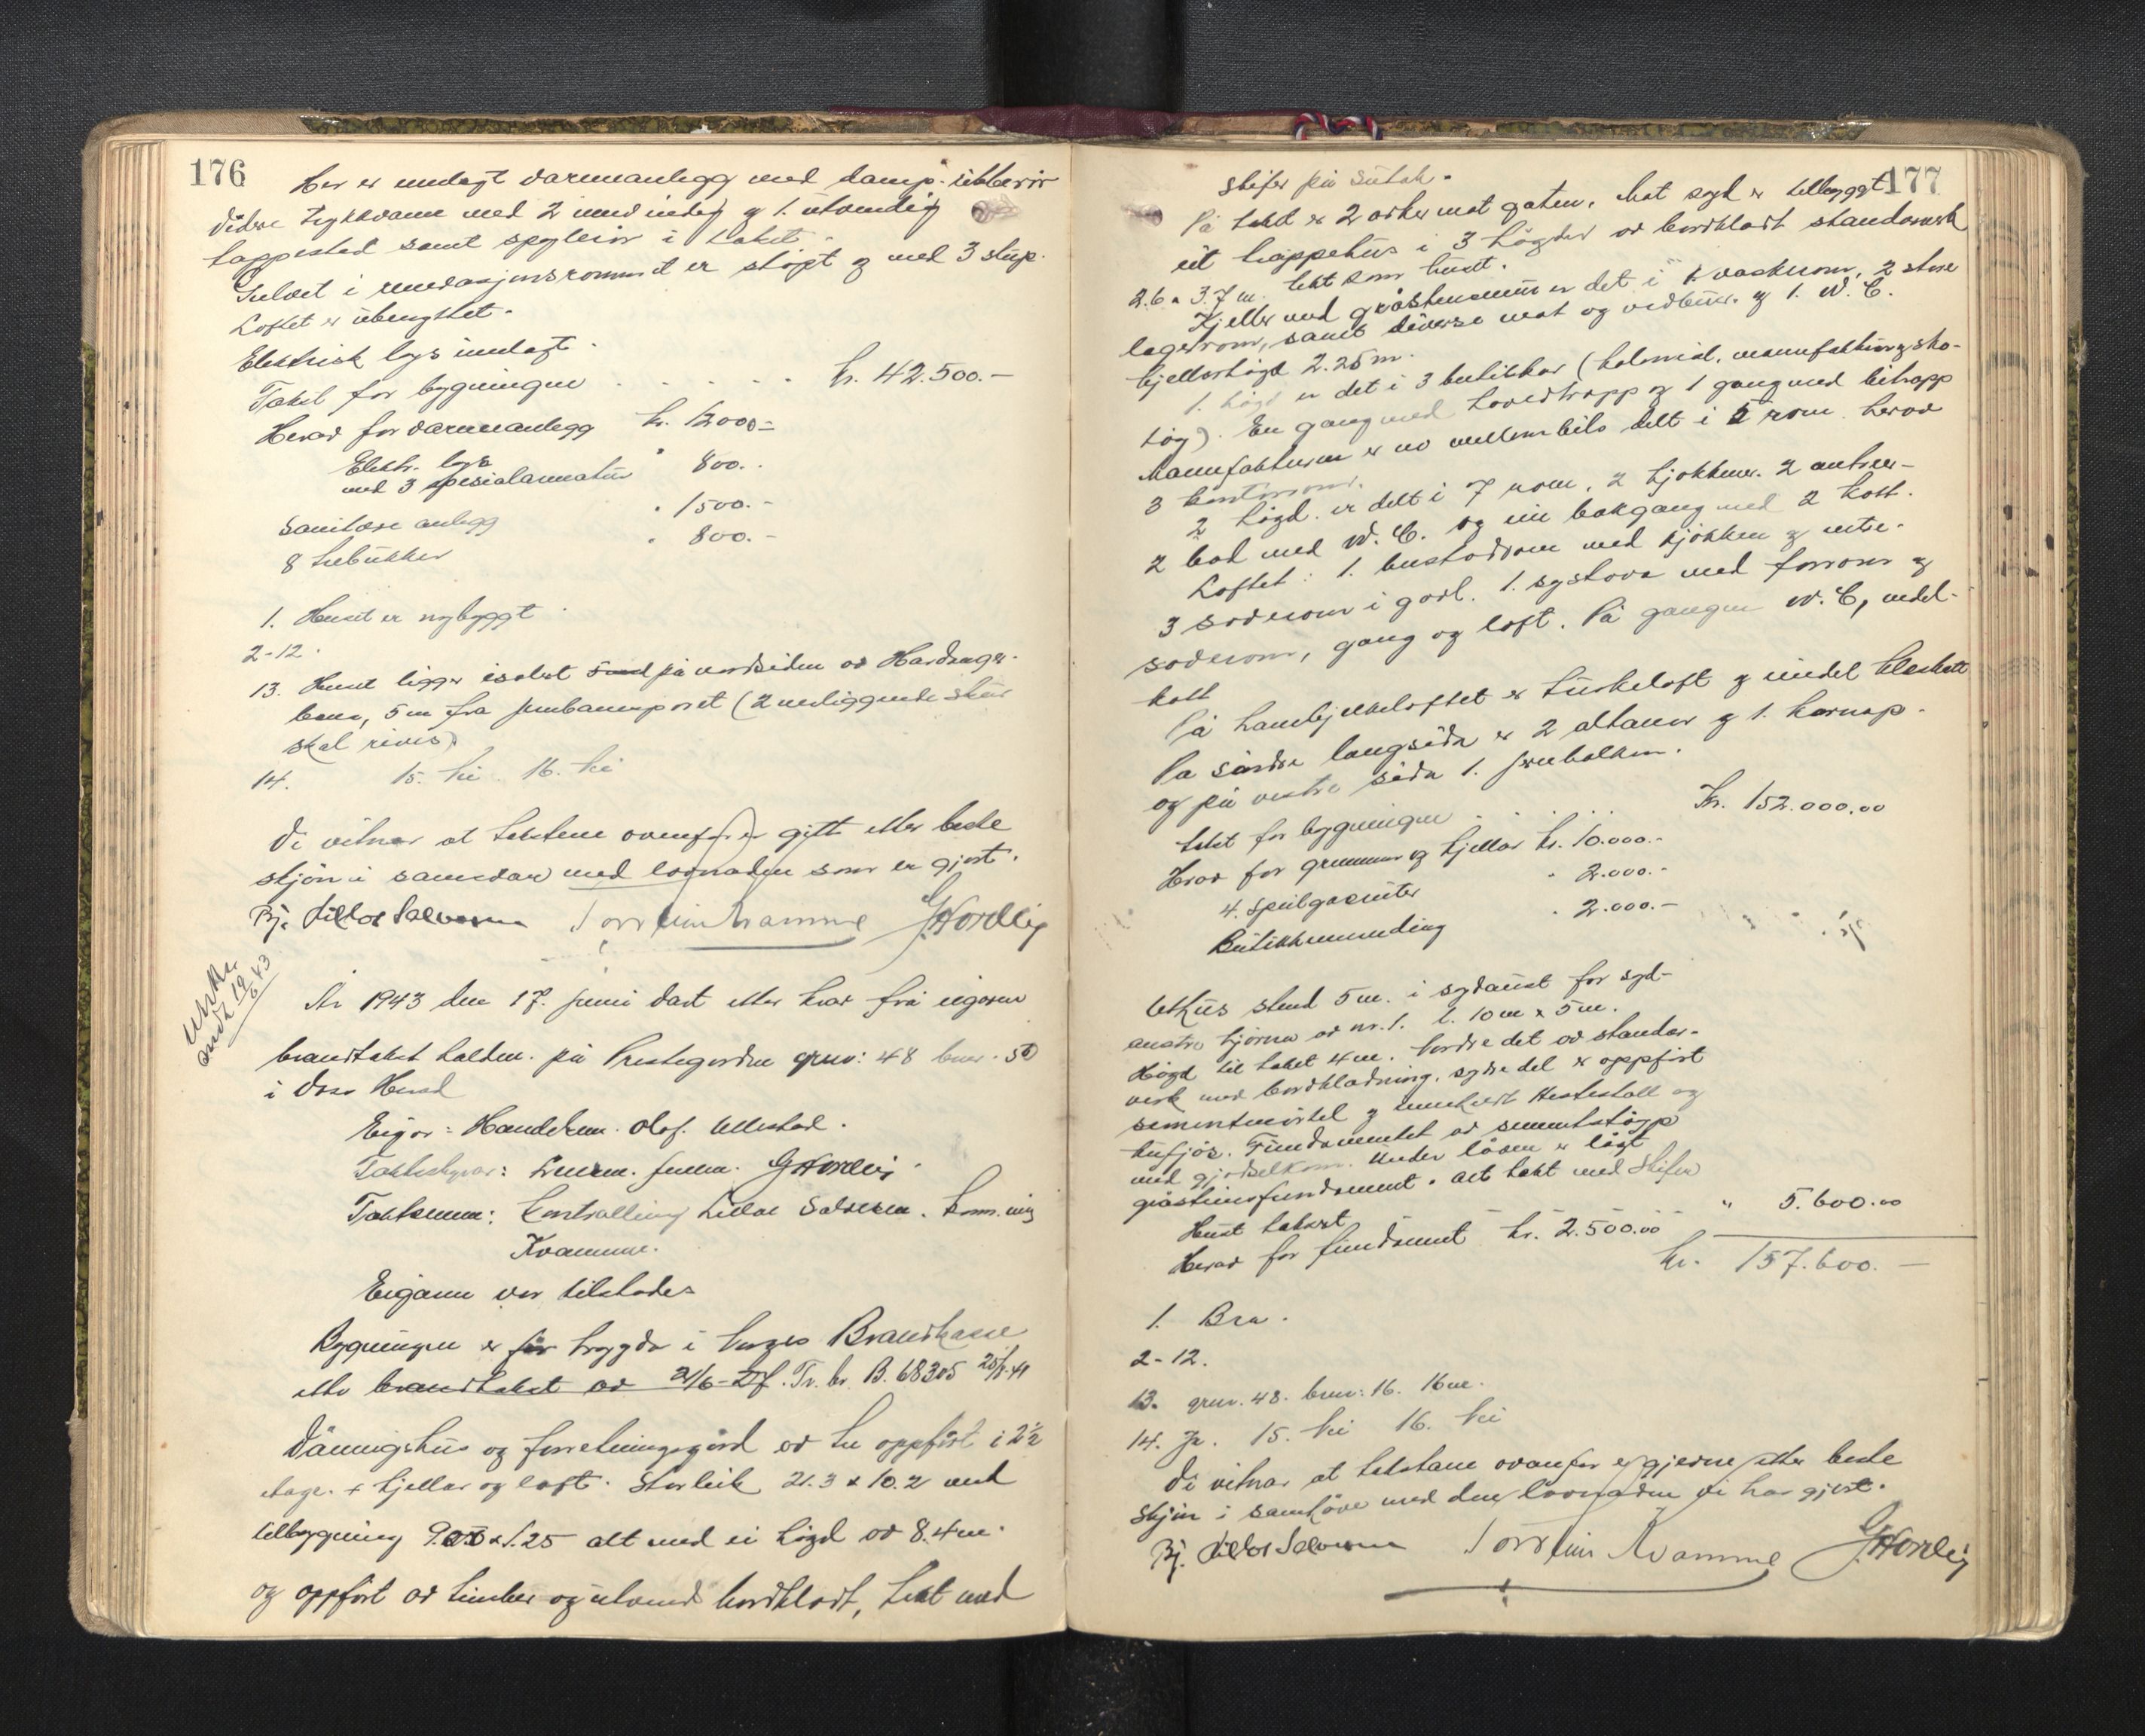 176
Her er innlagt varmeanlegg med damp.
vidare trykkvann med 2 innvendig og 1. utvendig
tappested samt spyleror i taket.
Gulvet i rommet er støypt og med 3 stup.
Loftet er ubenyttet.
Elektrisk lys innlagt.
Takst for bygningen . . . . . kr. 42.500.—
Herav for varmeanlegg kr. 12000=
Elektr. lys
med 3 spesialarmatur " 800..
Sanitære anlegg " 1500.-
8 trebukker " 800.-
1. Huset er nybyggt.
2-12.
13. Huset ligger isolert på nordsiden av Hardanger-
bana, 5 m fra jernbanesporet (2 omliggende skur
skal rives).
14. 15. Nei. 16. Nei
Vi vitnar at takstene ovenfor er gitt etter beste
skjøn i samsvar med lovnaden som er gjort.
Bj. Lillos Salvesen Torstein Kvamme G Horvei
Utskr.
sendt 19/6 43
År 1943 den 17. juni vart etter krav frå eigaren
brandtakst halden på Prestegarden grnr: 48 bnr. 50
i Voss Herad
Eigar: Handelsm. Olaf Ullestad.
Takststyrar: Lensm. fullm. G Horvei.
Takstmenn: Lillos Salvesen. Torst.
Kvamme.
Eigaren var tilstades
Bygningen er før trygda i Norges Brandkasse
etter brandtakst av 21/6-27. Tr. br. B. 68305 25/8-41
Våningshus og forretningsgård av tre oppført i 2½
etage. + kjellar og loft. Storleik 21.3 x 10.2 med
tilbygning x 1.25 alt med ei høgd av 8.4 m.
og oppført av timber og utvend bordkledt, tekt med
177
skifer på sutak.
På taket er 2 arker mot gaten. Mot syd er tilbyggt
eit trappehus i 3 høgder av bordkledt standarverk
2.6 x 3.7 m. tekt som huset.
Kjeller med gråstensmur er delt i 1 vaskerom, 2 store
lagerrom, samt diverse mat og vedbur. og 1. W.C.
Kjellerhøgd 2.25 m.
1. høgd er delt i 3 butikkar (kolonial, manufaktur og sko-
tøy). En gang med hovedtrapp og 1 gang med bitrapp
Manufakturen er no mellombils delt i 5 rom herav
3 kontorrom.
2 høgd. er delt i 7 rom, 2 kjøkkener. 2 antreer-
2 bad med W.C. og ein bakgang med 2 kott.
Loftet: 1. bustadrom med kjøkken og entre.
3 soverom i gavl. 1. systova med forrom og
soverom, gang og loft. På gangen W.C, vedel-
kott
På hanebjelkeloftet er turkeloft og eindel kleskott
På søndre langsida er 2 altaner og 1. karnap.
og på vestre sida 1. jernbalkon.
Takst for bygningen . . . . . Kr. 152.000.00
Herav for grunnmur og kjellar kr. 10.000.-
4. speilglasruter " 2.000.-
Butikkinnreding " 2.000.-
Uthus stend 5 m. i sydaust for syd-
austre hjørna av nr. 1. l. 10 m x 5 m.
Høgd til taket 4 m. Nordre del av standar-
verk med bordkledning. sydre del er oppført
sementmørtel og inneheld Hestestall og
kufjøs. Fundamentet av sementstøyp
med gjødselkum. Under løven er lågt
gråsteinsfundament. Alt tekt med skifer
Huset taksert " 5.600.00
Herav for fundament kr. 2.500.00
kr. 157.600.—
1. Bra.
2-12.
13. grnr. 48. bnr: 16. 16 m.
14. Ja. 15. Nei 16. Nei
Vi vitnar at takstane ovanfor er gjevne etter beste
Skjøn i samhøve med den lovnaden vi har gjort.
Bj. Lillos Salvesen Torstein Kvamme G Horvei